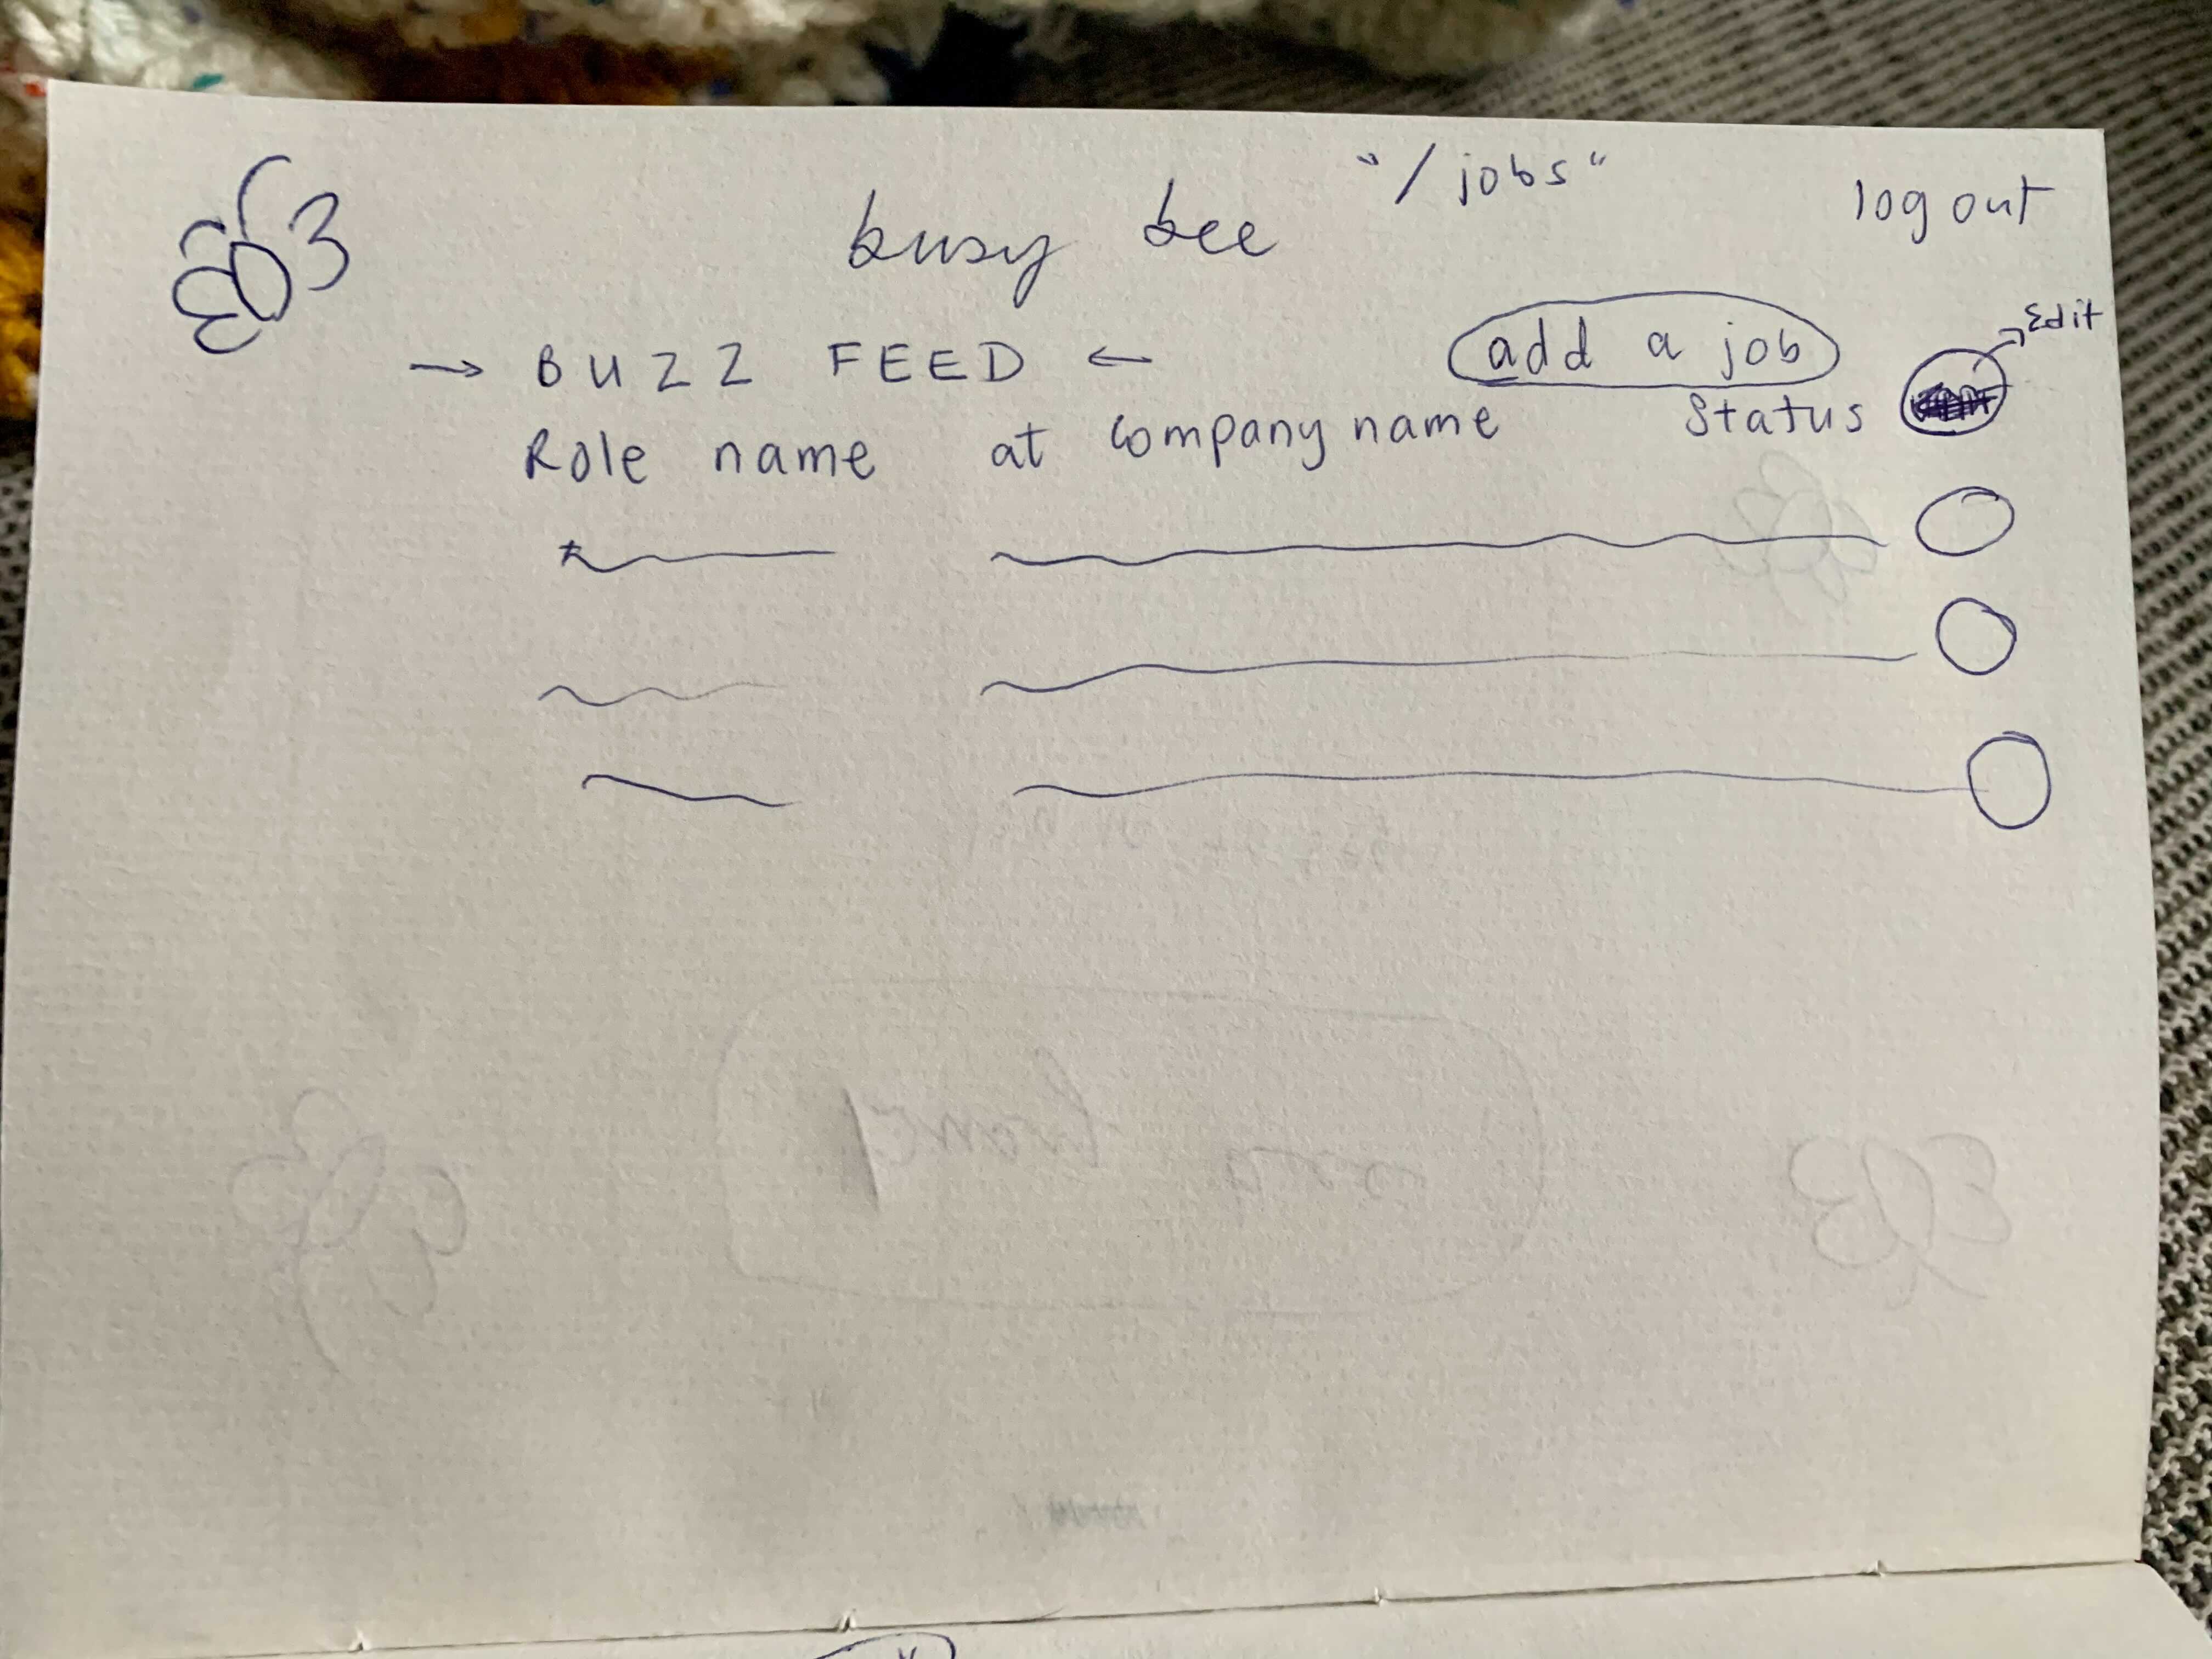 "/jobs"
busy bee
log out
→ BUZZ FEED ←
add a job
Edit
Role name at company name
Status